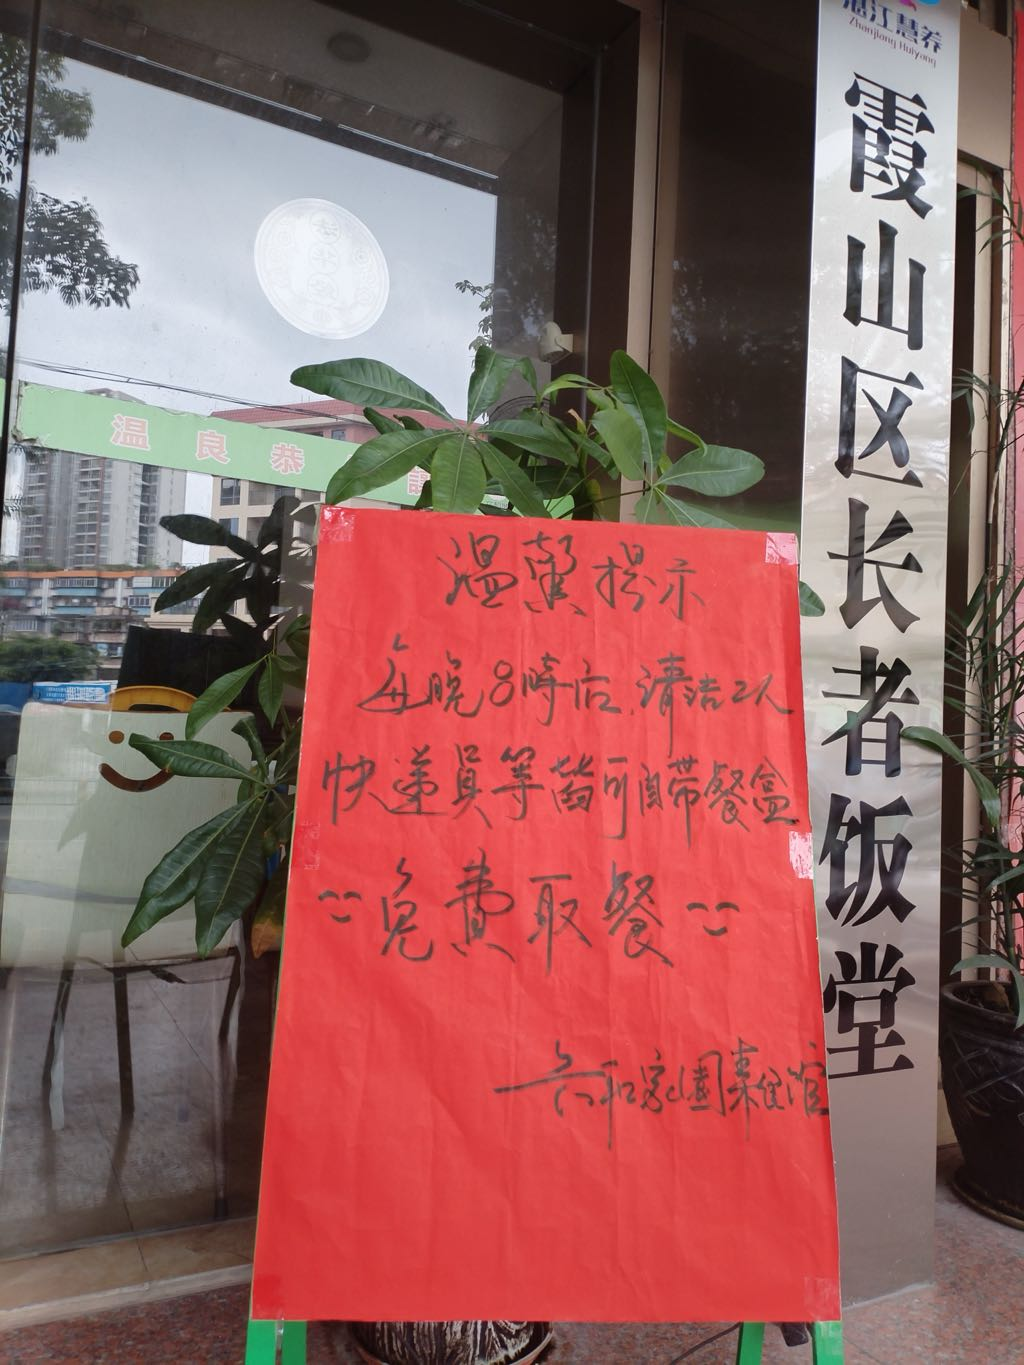 湛江慧养
Zhanjiang Huiyang
霞山区长者饭堂
温良恭
温馨提示
每晚8時后,请洁工人
快递員等皆可自带餐盒
免費取餐
六和家园素食馆